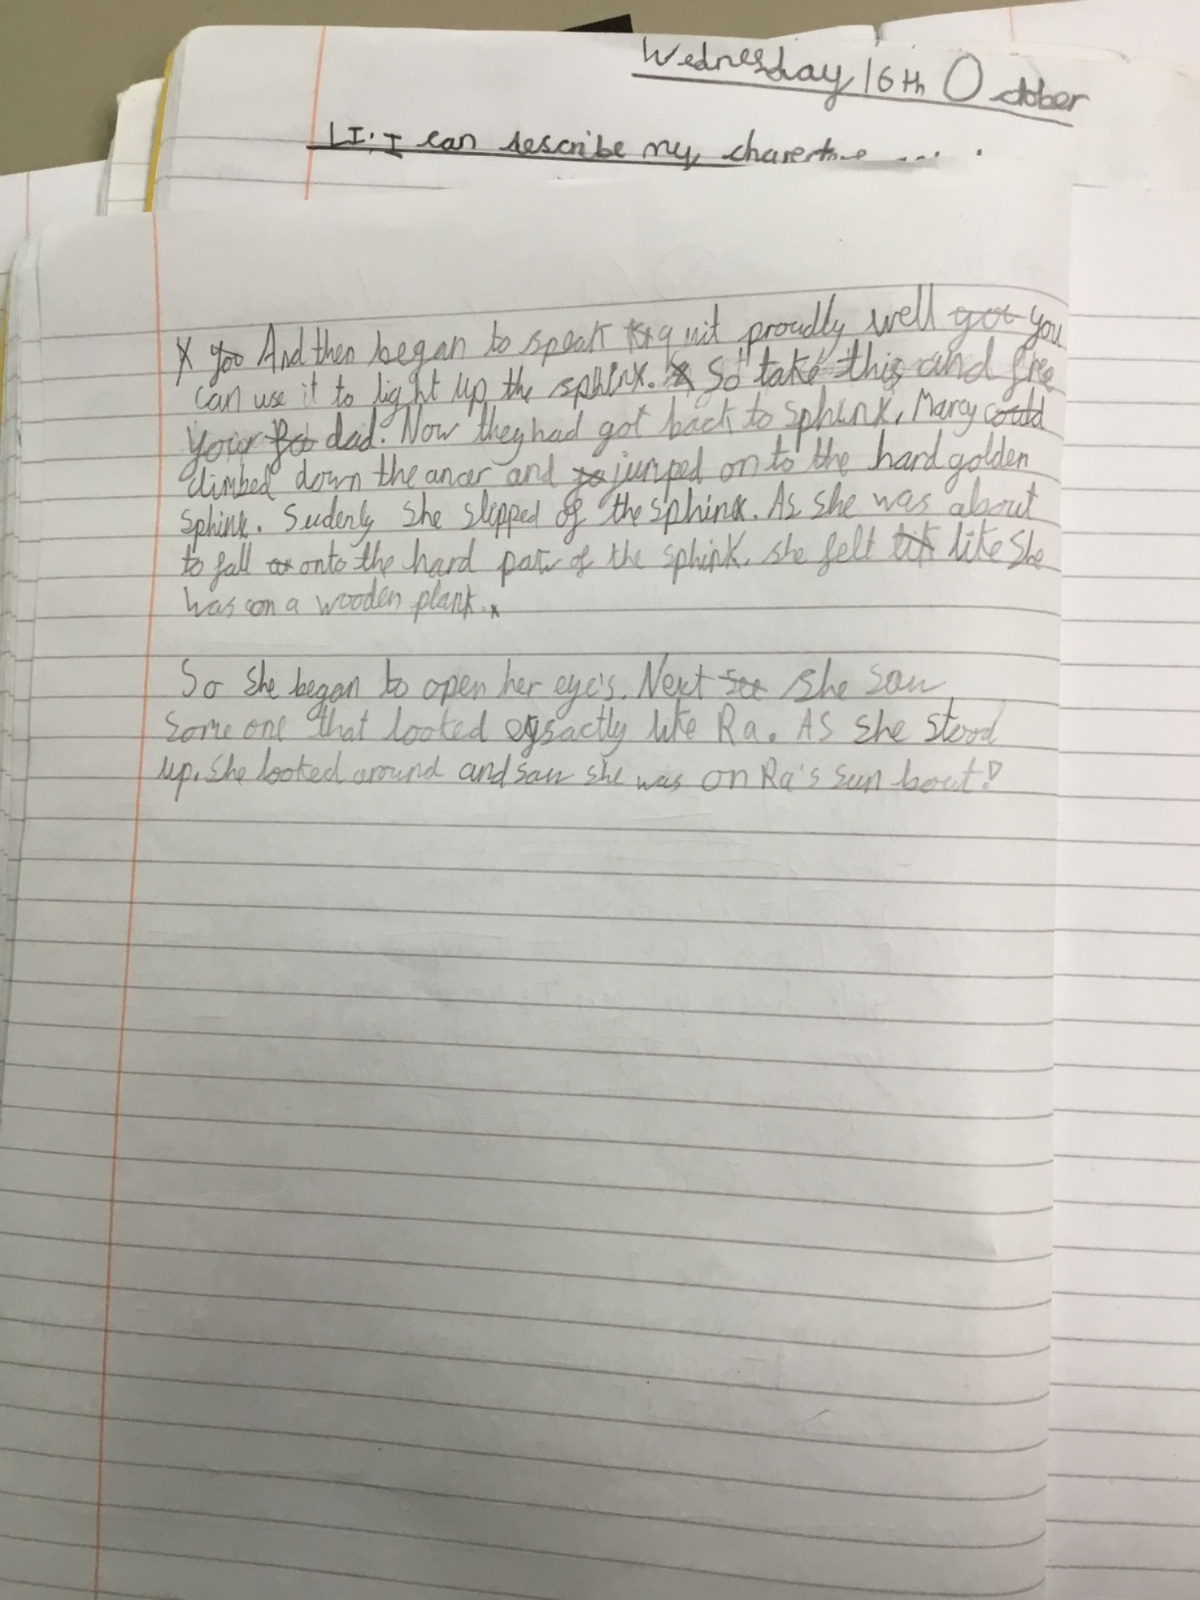 Wednesday 16th October
LI: I can describe my
X you And then began to speak quit proudly well got you
can use it to light up the sphinx. So "take this and free
your dad. Now they had got back to sphinx, Marcy could
climbed down the ancer and to jumped onto the hard golden
Sphinx. Sudenly she slipped of the sphinx. As she was about
to fall onto the hard part of the sphink, she felt like she
was on a wooden plank. x
So she began to open her eye's. Next See she saw
some one that looked egsactly like Ra. As she stood
up, she looked around and saw she was on Ra's sun bout!